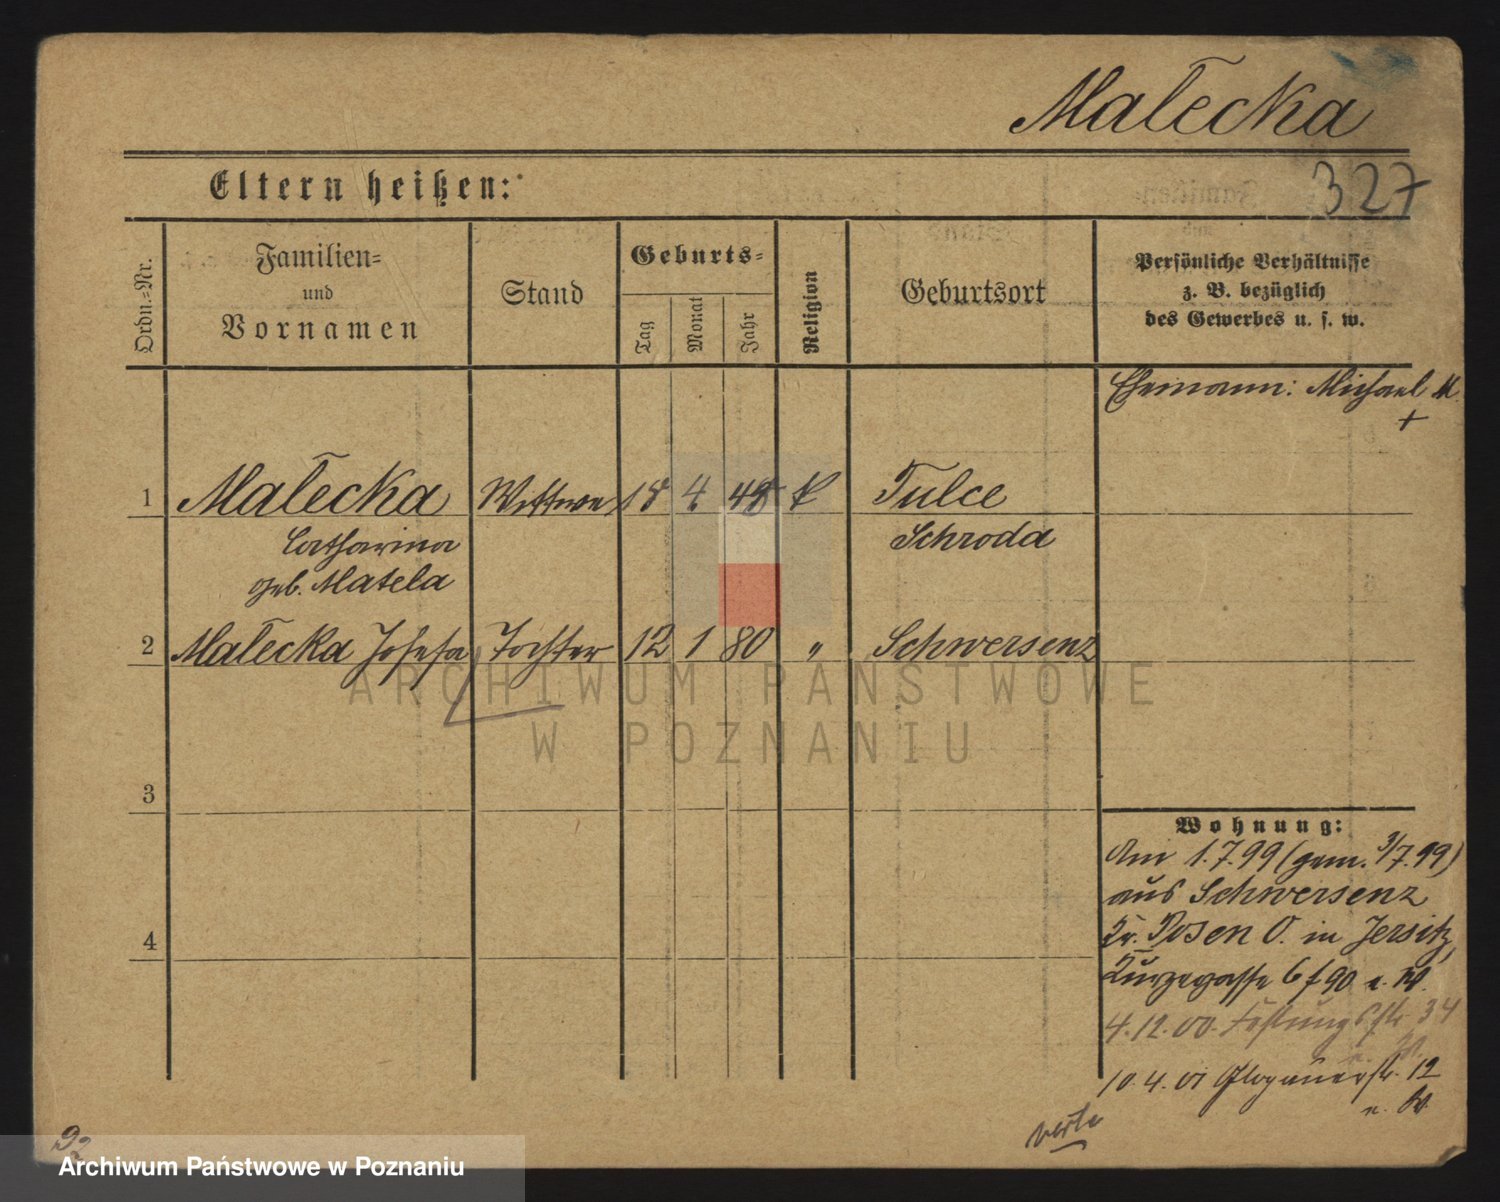 Małecka
327
Eltern heißen:
Ordn.-Nr.
Familien-
und
Vornamen
Stand
Geburts-
Tag
Monat
Jahr
Religion
Geburtsort
Persönliche Verhältnisse
z. B. bezüglich
des Gewerbes u. s. w.
Ehemann: Michael M.
+
1 Małecka Wittwe 18 4 48 k Tulce
Catharina Schroda
geb. Matela
2 Małecka Josefa Tochter 12 1 80 " Schwersenz
ARCHIWUM PAŃSTWOWE
W POZNANIU
3
4
Wohnung:
Am 1.7.99 (gem. 3/7.99)
aus Schwersenz
Kr. Posen O. in Jersitz,
Kurzegasse 6 f 90 e. W.
4.12.00. Festungsstr. 34
10.4.01 Glogauerstr. 12
e. W.
verte
92
Archiwum Państwowe w Poznaniu